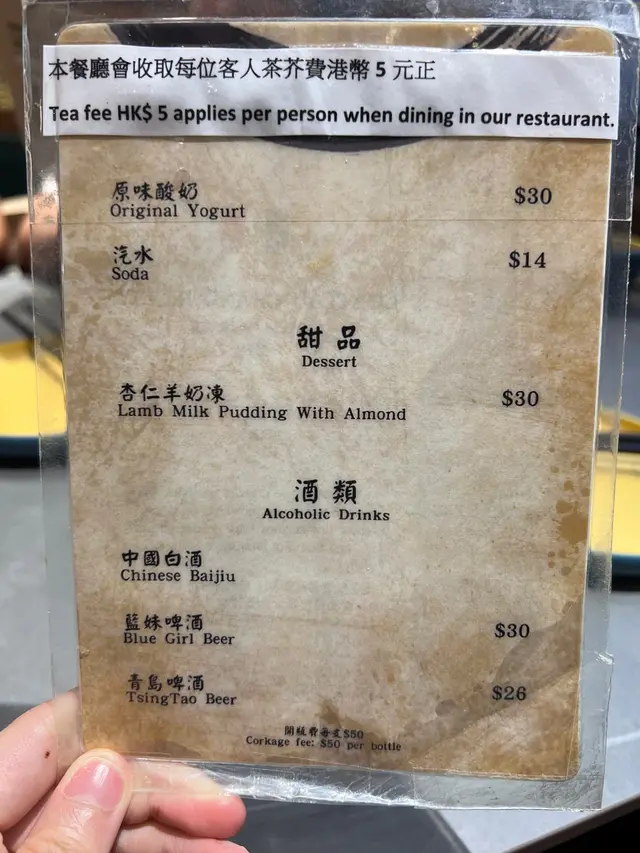 本餐廳會收取每位客人茶芥費港幣 5 元正
Tea fee HK$ 5 applies per person when dining in our restaurant.
原味酸奶 $30
Original Yogurt
汽水 $14
Soda
甜品
Dessert
杏仁羊奶凍 $30
Lamb Milk Pudding With Almond
酒類
Alcoholic Drinks
中國白酒
Chinese Baijiu
藍妹啤酒 $30
Blue Girl Beer
青島啤酒 $26
TsingTao Beer
開瓶費每支$50
Corkage fee: $50 per bottle